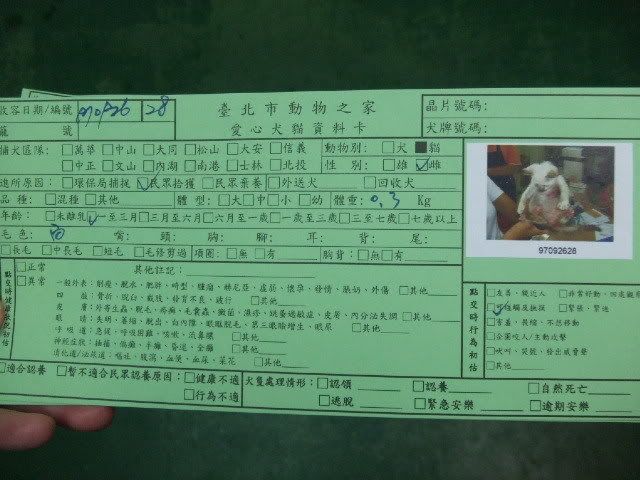 收容日期/編號 970926 28
臺北市動物之家
愛心犬貓資料卡
晶片號碼:
籠 號
犬牌號碼:
捕犬區隊: □萬華 □中山 □大同 □松山 □大安 □信義 動物別: □犬 ■貓
□中正 □文山 □內湖 □南港 □士林 □北投 性 別: □雄 ☑雌
進所原因: □環保局捕捉 ☑民眾拾獲 □民眾棄養 □外送犬 □回收犬
品 種: □混種 □其他 體 型: □大 □中 □小 □幼 體重: 0.3 Kg
年齡: □未離乳 ☑一至三月 □三月至六月 □六月至一歲 □一歲至三歲 □三至七歲 □七歲以上
毛色: 白 嘴: 頭: 胸: 腳: 耳: 背: 尾:
□長毛 □中長毛 □短毛 □毛修剪過 項圈: □無 □有 胸背: □無 □有
97092628
點交時健康狀況初估
□正常
□異常
其他註記:
一般外表: 削瘦、脫水、肥胖、畸型、腫瘤、赫尼亞、虛弱、懷孕、發情、脹奶、外傷 □其他
四 肢: 骨折、脫臼、截肢、發育不良、跛行 □其他
皮 膚: 外寄生蟲、脫毛、疥癬、毛囊蟲、黴菌、濕疹、跳蚤過敏症、皮屑、內分泌失調 □其他
眼 睛: 失明、萎縮、脫出、白內障、眼瞼脫毛、第三眼瞼增生、眼屎 □其他
呼吸道: 急促、呼吸困難、咳嗽、流鼻膿 □其他
神經症狀: 抽搐、偏癱、半癱、昏迷、全癱 □其他
消化道/泌尿道: 嘔吐、腹瀉、血便、血尿、菜花 □其他
點交時行為初估
□友善、親近人 □非常好動、四處觀
☑可碰觸及撫摸 □緊張、緊迫
□害羞、畏縮、不想移動
□企圖咬人/主動攻擊
□吠叫、哭號、發出威脅聲
□其他
□適合認養 □暫不適合民眾認養原因: □健康不適
□行為不適
犬隻處理情形: □認領 □認養 □自然死亡
□逃脫 □緊急安樂 □逾期安樂